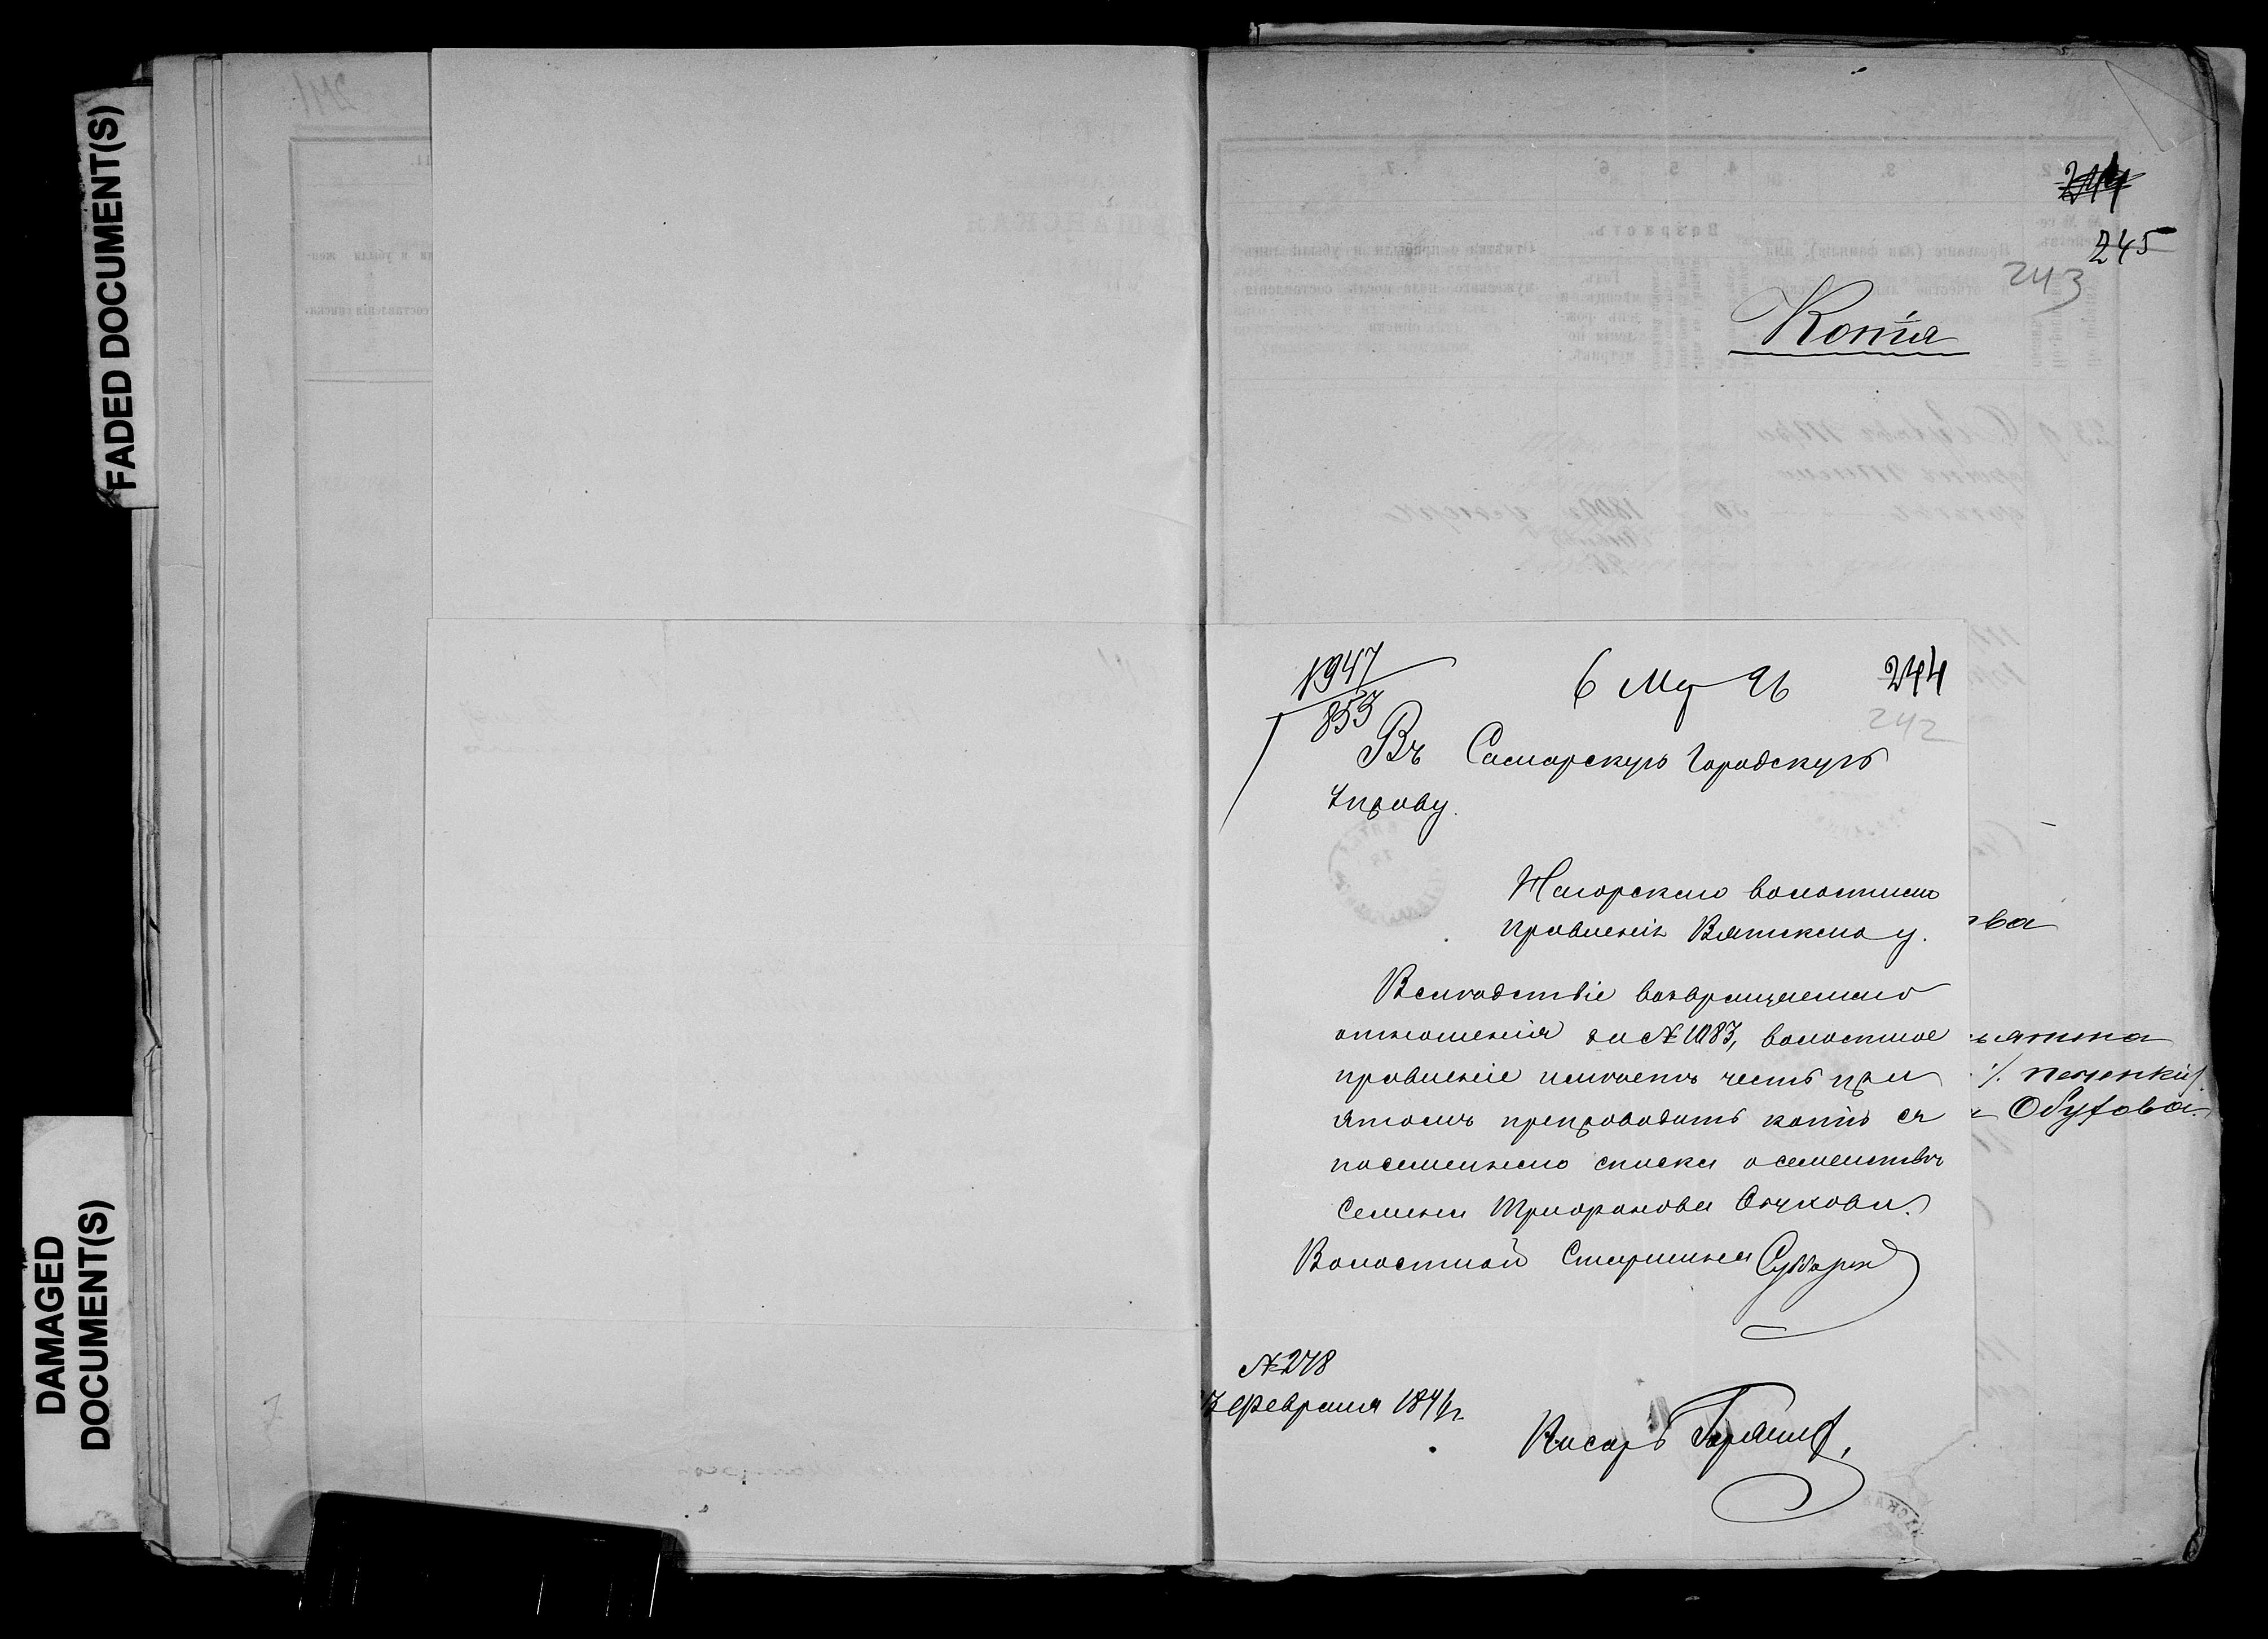 FAADED DOCUMENT(S)
DAMAGED
DOCUMENT(S)
244
245
243
Копія
1947
853
6 Мр 96
244
242
Въ Самарскую Городскую
Управу.
волостнаго
правленія Вятскаго у.
Вслѣдствіе возвращаемаго
отношенія за № 1083, волостное
правленіе имѣетъ честь при
этомъ препроводить копію съ
посемейнаго списка о семействѣ
Семена Трифонова Обухова.
Волостной Старшина
№ 278
Февраля 1896 г.
Писарь
ва
Обухова.